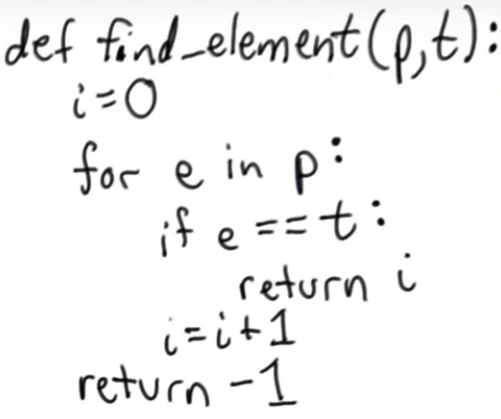 def find_element(p,t):
i=0
for e in p:
if e==t:
return i
i=i+1
return -1